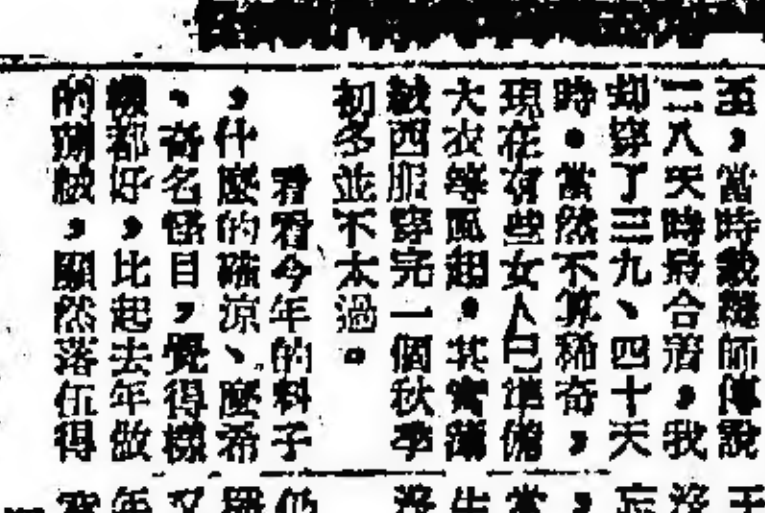 至，當時裁縫師傅說
二八天時最合著，我
却穿了三九、四十天
時。當然不算稀奇，
現在有些女人已準備
大衣等風起，其實薄
絨西服穿完一個秋季
初冬並不太過。
看看今年的料子
，什麼的確涼、麼希
、奇名怪目，覺得樣
樣都好，比起去年做
的薄絨，顯然落伍得